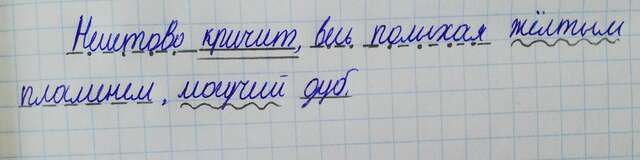 Неистово кричит, весь полыхая жёлтым
пламенем, могучий дуб.